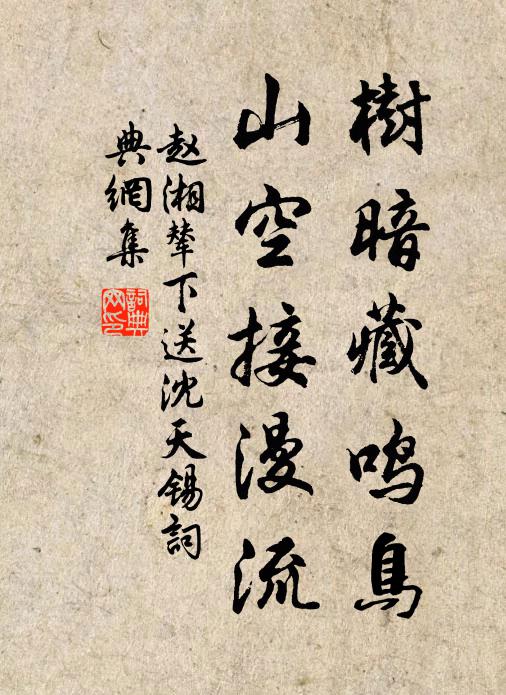 樹暗藏鳴鳥
山空接漫流
赵湘輦下送沈天锡詞
典網集
詞典网印